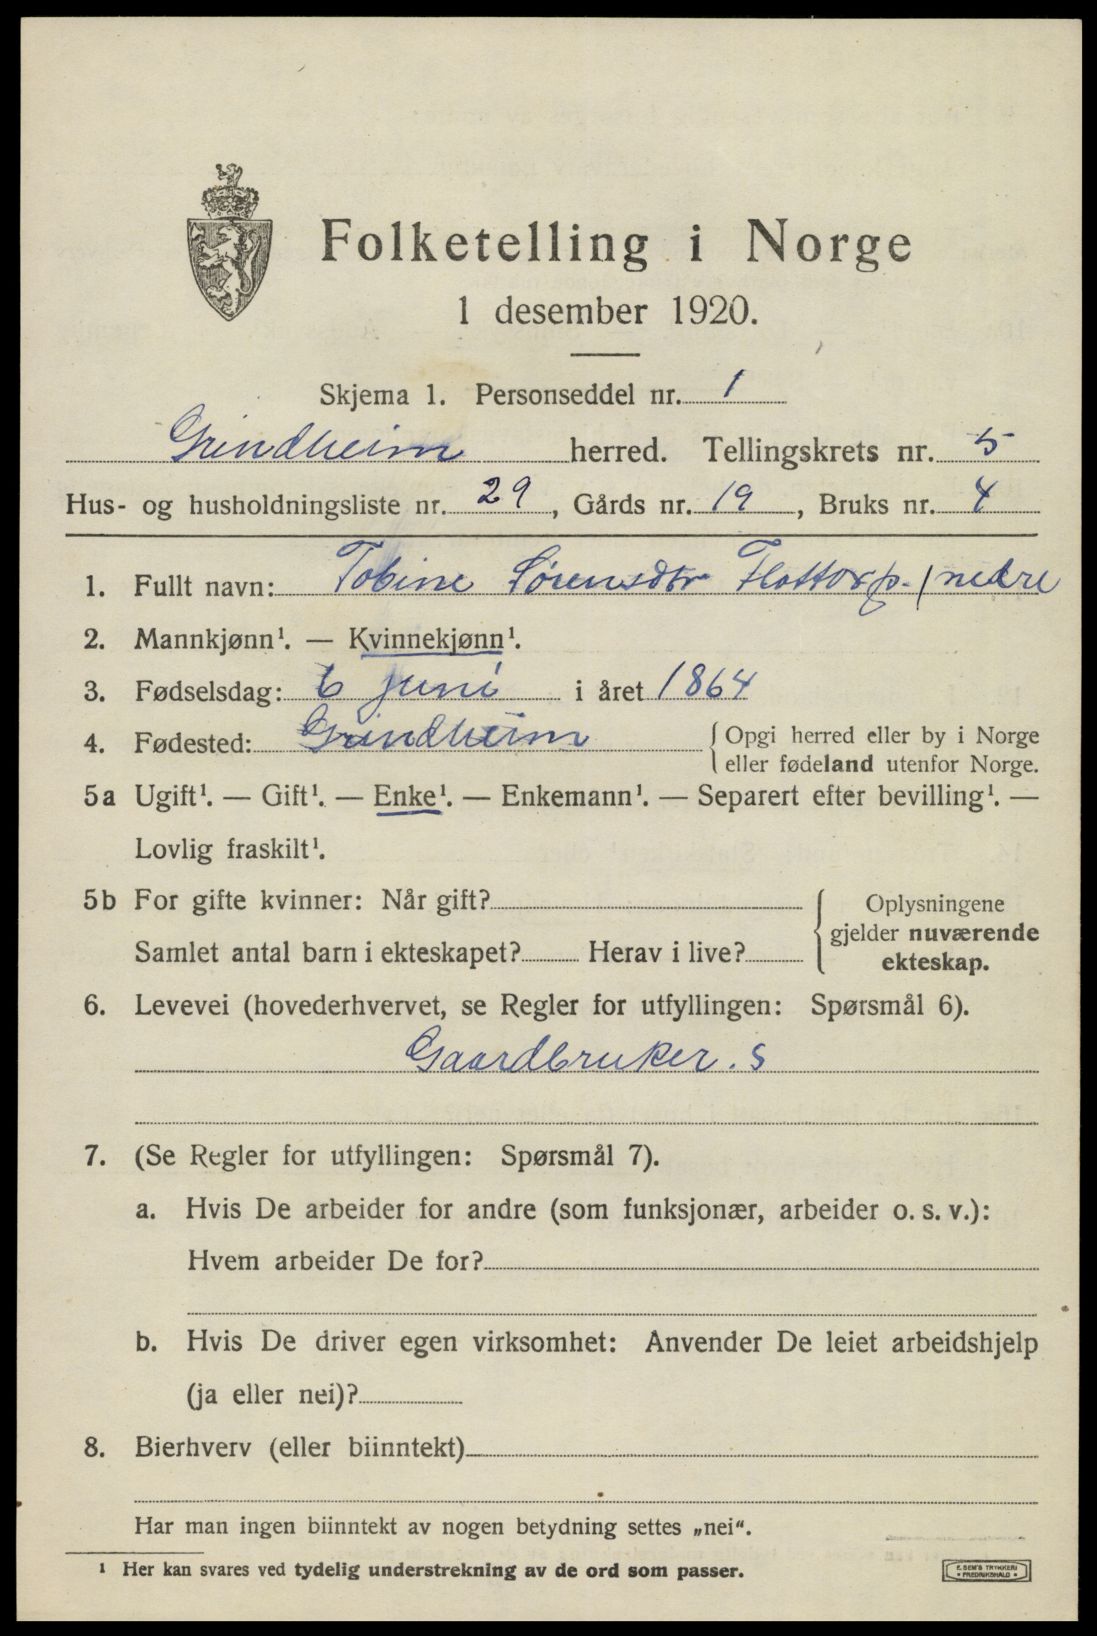 Folketelling i Norge
1 desember 1920.
Skjema 1. Personseddel nr. 1
Grindheim herred. Tellingskrets nr. 5
Hus- og husholdningsliste nr. 29, Gårds nr. 19, Bruks nr. 4
1. Fullt navn: Tobine Sørensdtr Flottorp. / nedre
2. Mannkjønn¹. — Kvinnekjønn¹.
3. Fødselsdag: 6 juni i året 1864
4. Fødested: Grindheim { Opgi herred eller by i Norge
eller fødeland utenfor Norge.
5a Ugift¹. — Gift¹. — Enke¹. — Enkemann¹. — Separert efter bevilling¹. —
Lovlig fraskilt¹.
5b For gifte kvinner: Når gift?
Samlet antal barn i ekteskapet? Herav i live?
{ Oplysningene
gjelder nuværende
ekteskap.
6. Levevei (hovederhvervet, se Regler for utfyllingen: Spørsmål 6).
Gaardbruker. S
7. (Se Regler for utfyllingen: Spørsmål 7).
a. Hvis De arbeider for andre (som funksjonær, arbeider o. s. v.):
Hvem arbeider De for?
b. Hvis De driver egen virksomhet: Anvender De leiet arbeidshjelp
(ja eller nei)?
8. Bierhverv (eller biinntekt)
Har man ingen biinntekt av nogen betydning settes „nei“.
¹ Her kan svares ved tydelig understrekning av de ord som passer.
E. SEM'S TRYKKERI
• FREDRIKSHALD •